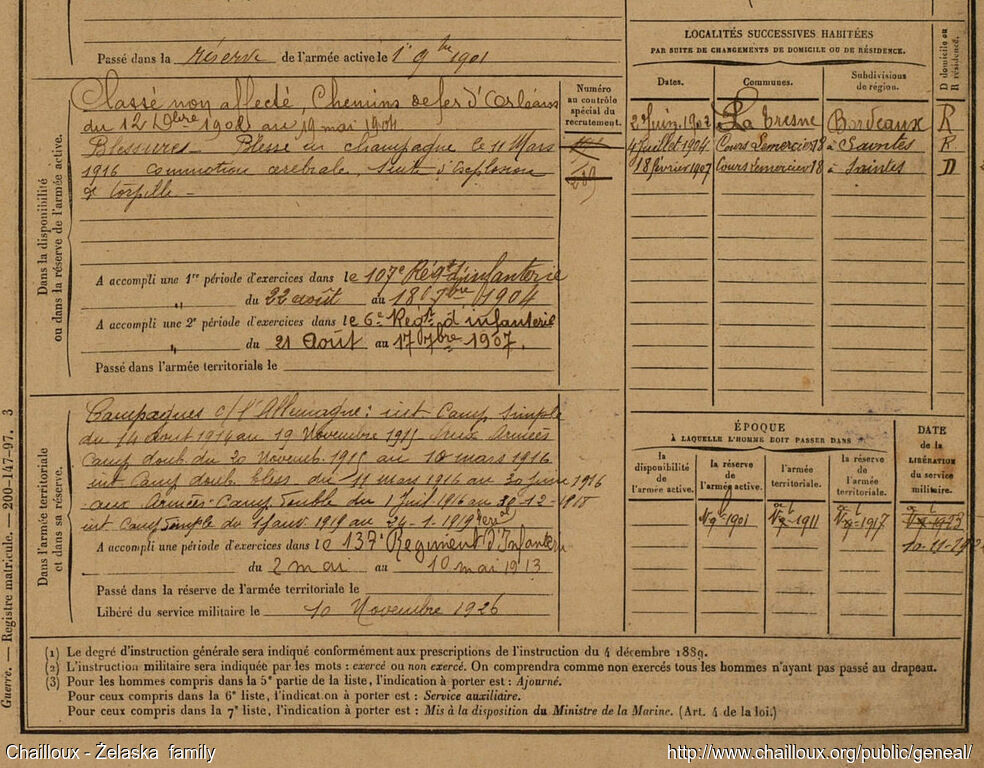 Passé dans la réserve de l'armée active le 1er 9bre 1901
Classé non affecté, Chemins de fer d'Orléans
du 12 Xbre 1902 au 19 mai 1904
Blessures - Blessé en champagne le 11 Mars
1916 commotion cérébrale, suite d'explosion
de torpille -
A accompli une 1re période d'exercices dans le 107e Régt d'infanterie
" du 22 août au 18 7bre 1904
A accompli une 2e période d'exercices dans le 6e Régt d'infanterie
" du 21 Août au 17 7bre 1907.
Passé dans l'armée territoriale le
Campagnes c/ l'Allemagne : int Camp. simple
du 14 aout 1914 au 19 Novembre 1915 aux Armées
Camp doub. du 20 Novemb. 1915 au 10 mars 1916
int Camp double bless du 11 mars 1916 au 30 juin 1916
aux Armées Camp double du 1 Juil 1916 au
int Camp simple du 1 janv 1919 au 24-1-1919
A accompli une période d'exercices dans le 137e Régiment d'Infanterie
terial
du 2 mai au 10 mai 1913
Passé dans la réserve de l'armée territoriale le
Libéré du service militaire le 10 Novembre 1926
Dans la disponibilité
ou dans la réserve de l'armée active.
Dans l'armée territoriale
et dans sa réserve.
Numéro
au contrôle
spécial du
recrutement.
LOCALITÉS SUCCESSIVES HABITÉES
PAR SUITE DE CHANGEMENTS DE DOMICILE OU DE RÉSIDENCE.
Dates. Communes. Subdivisions
de région.
D domicile ou
R résidence.
2 juin 1902 La Tresne Bordeaux R
4 juillet 1904 Cours Lemercier 18 à Saintes R.
18 février 1907 Cours Lemercier 18 à Saintes D
ÉPOQUE
À LAQUELLE L'HOMME DOIT PASSER DANS
DATE
de la
LIBÉRATION
du service
militaire.
la
disponibilité
de l'armée active.
la réserve
de
l'armée active.
l'armée
territoriale.
la réserve
de l'armée
territoriale.
1901 1911 1917 1923
10-11-192
Guerre. — Registre matricule. — 200-147-97. 3
(1) Le degré d'instruction générale sera indiqué conformément aux prescriptions de l'instruction du 4 décembre 1889.
(2) L'instruction militaire sera indiquée par les mots : exercé ou non exercé. On comprendra comme non exercés tous les hommes n'ayant pas passé au drapeau.
(3) Pour les hommes compris dans la 5e partie de la liste, l'indication à porter est : Ajourné.
Pour ceux compris dans la 6e liste, l'indication à porter est : Service auxiliaire.
Pour ceux compris dans la 7e liste, l'indication à porter est : Mis à la disposition du Ministre de la Marine. (Art. 4 de la loi.)
Chailloux - Żelaska family
http://www.chailloux.org/public/geneal/